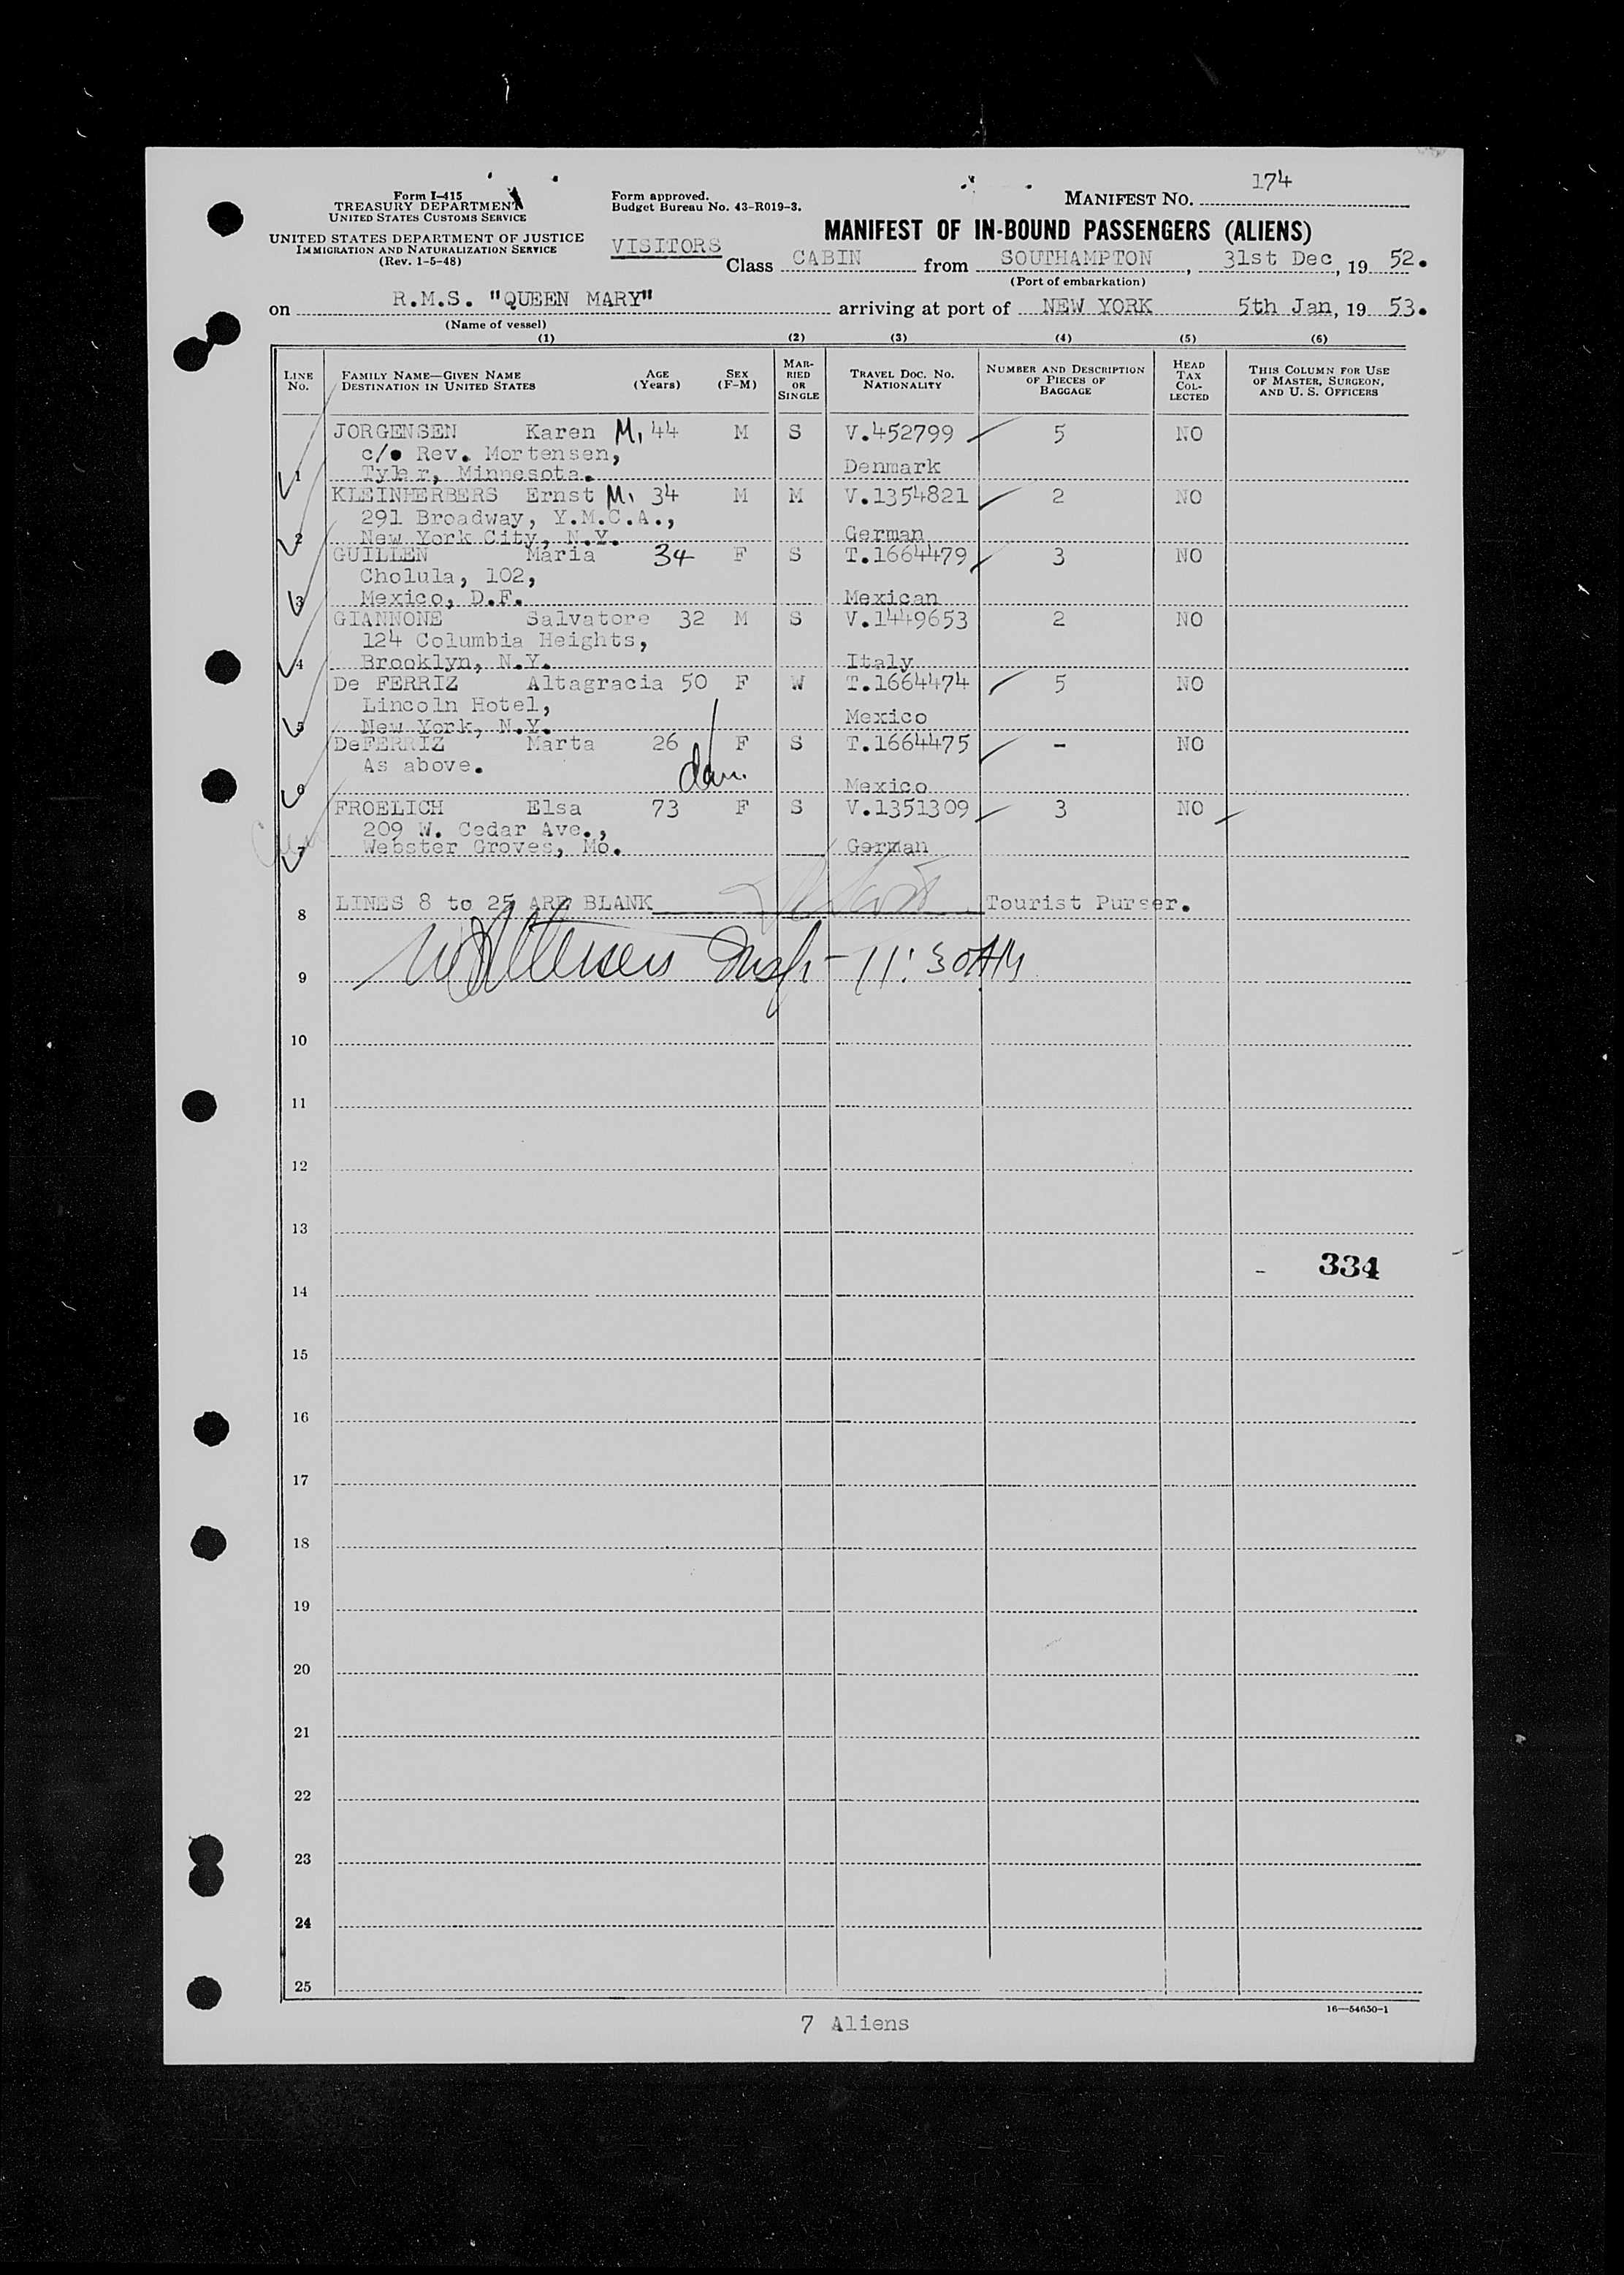 174
Form I-415
TREASURY DEPARTMENT
UNITED STATES CUSTOMS SERVICE
UNITED STATES DEPARTMENT OF JUSTICE
IMMIGRATION AND NATURALIZATION SERVICE
(Rev. 1-5-48)
Form approved.
Budget Bureau No. 43-R019-3.
MANIFEST NO.
MANIFEST OF IN-BOUND PASSENGERS (ALIENS)
VISITORS
Class CABIN from SOUTHAMPTON, 31st Dec, 19 52.
(Port of embarkation)
on R.M.S. "QUEEN MARY" arriving at port of NEW YORK 5th Jan, 19 53.
(Name of vessel)
(1) (2) (3) (4) (5) (6)
LINE No. FAMILY NAME—GIVEN NAME DESTINATION IN UNITED STATES AGE (Years) SEX (F-M) MARRIED OR SINGLE TRAVEL DOC. NO. NATIONALITY NUMBER AND DESCRIPTION OF PIECES OF BAGGAGE HEAD TAX COLLECTED THIS COLUMN FOR USE OF MASTER, SURGEON, AND U. S. OFFICERS
JORGENSEN Karen M. 44 M S V.452799 5 NO
c/o Rev. Mortensen,
1 Tyler, Minnesota. Denmark
KLEINHERBERS Ernst M. 34 M M V.1354821 2 NO
291 Broadway, Y.M.C.A.,
2 New York City, N.Y. German
GUILLEN Maria 34 F S T.1664479 3 NO
Cholula, 102,
3 Mexico, D.F. Mexican
GIANNONE Salvatore 32 M S V.1449653 2 NO
124 Columbia Heights,
4 Brooklyn, N.Y. Italy
De FERRIZ Altagracia 50 F W T.1664474 5 NO
Lincoln Hotel,
5 New York, N.Y. Mexico
DeFERRIZ Marta 26 F S T.1664475 - NO
As above.
dau.
6 Mexico
FROELICH Elsa 73 F S V.1351309 3 NO
209 W. Cedar Ave.,
7 Webster Groves, Mo. German
8 LINES 8 to 25 ARE BLANK Tourist Purser.
9 11:30AM
10
11
12
13
334
14
15
16
17
18
19
20
21
22
23
24
25
16—54650-1
7 Aliens